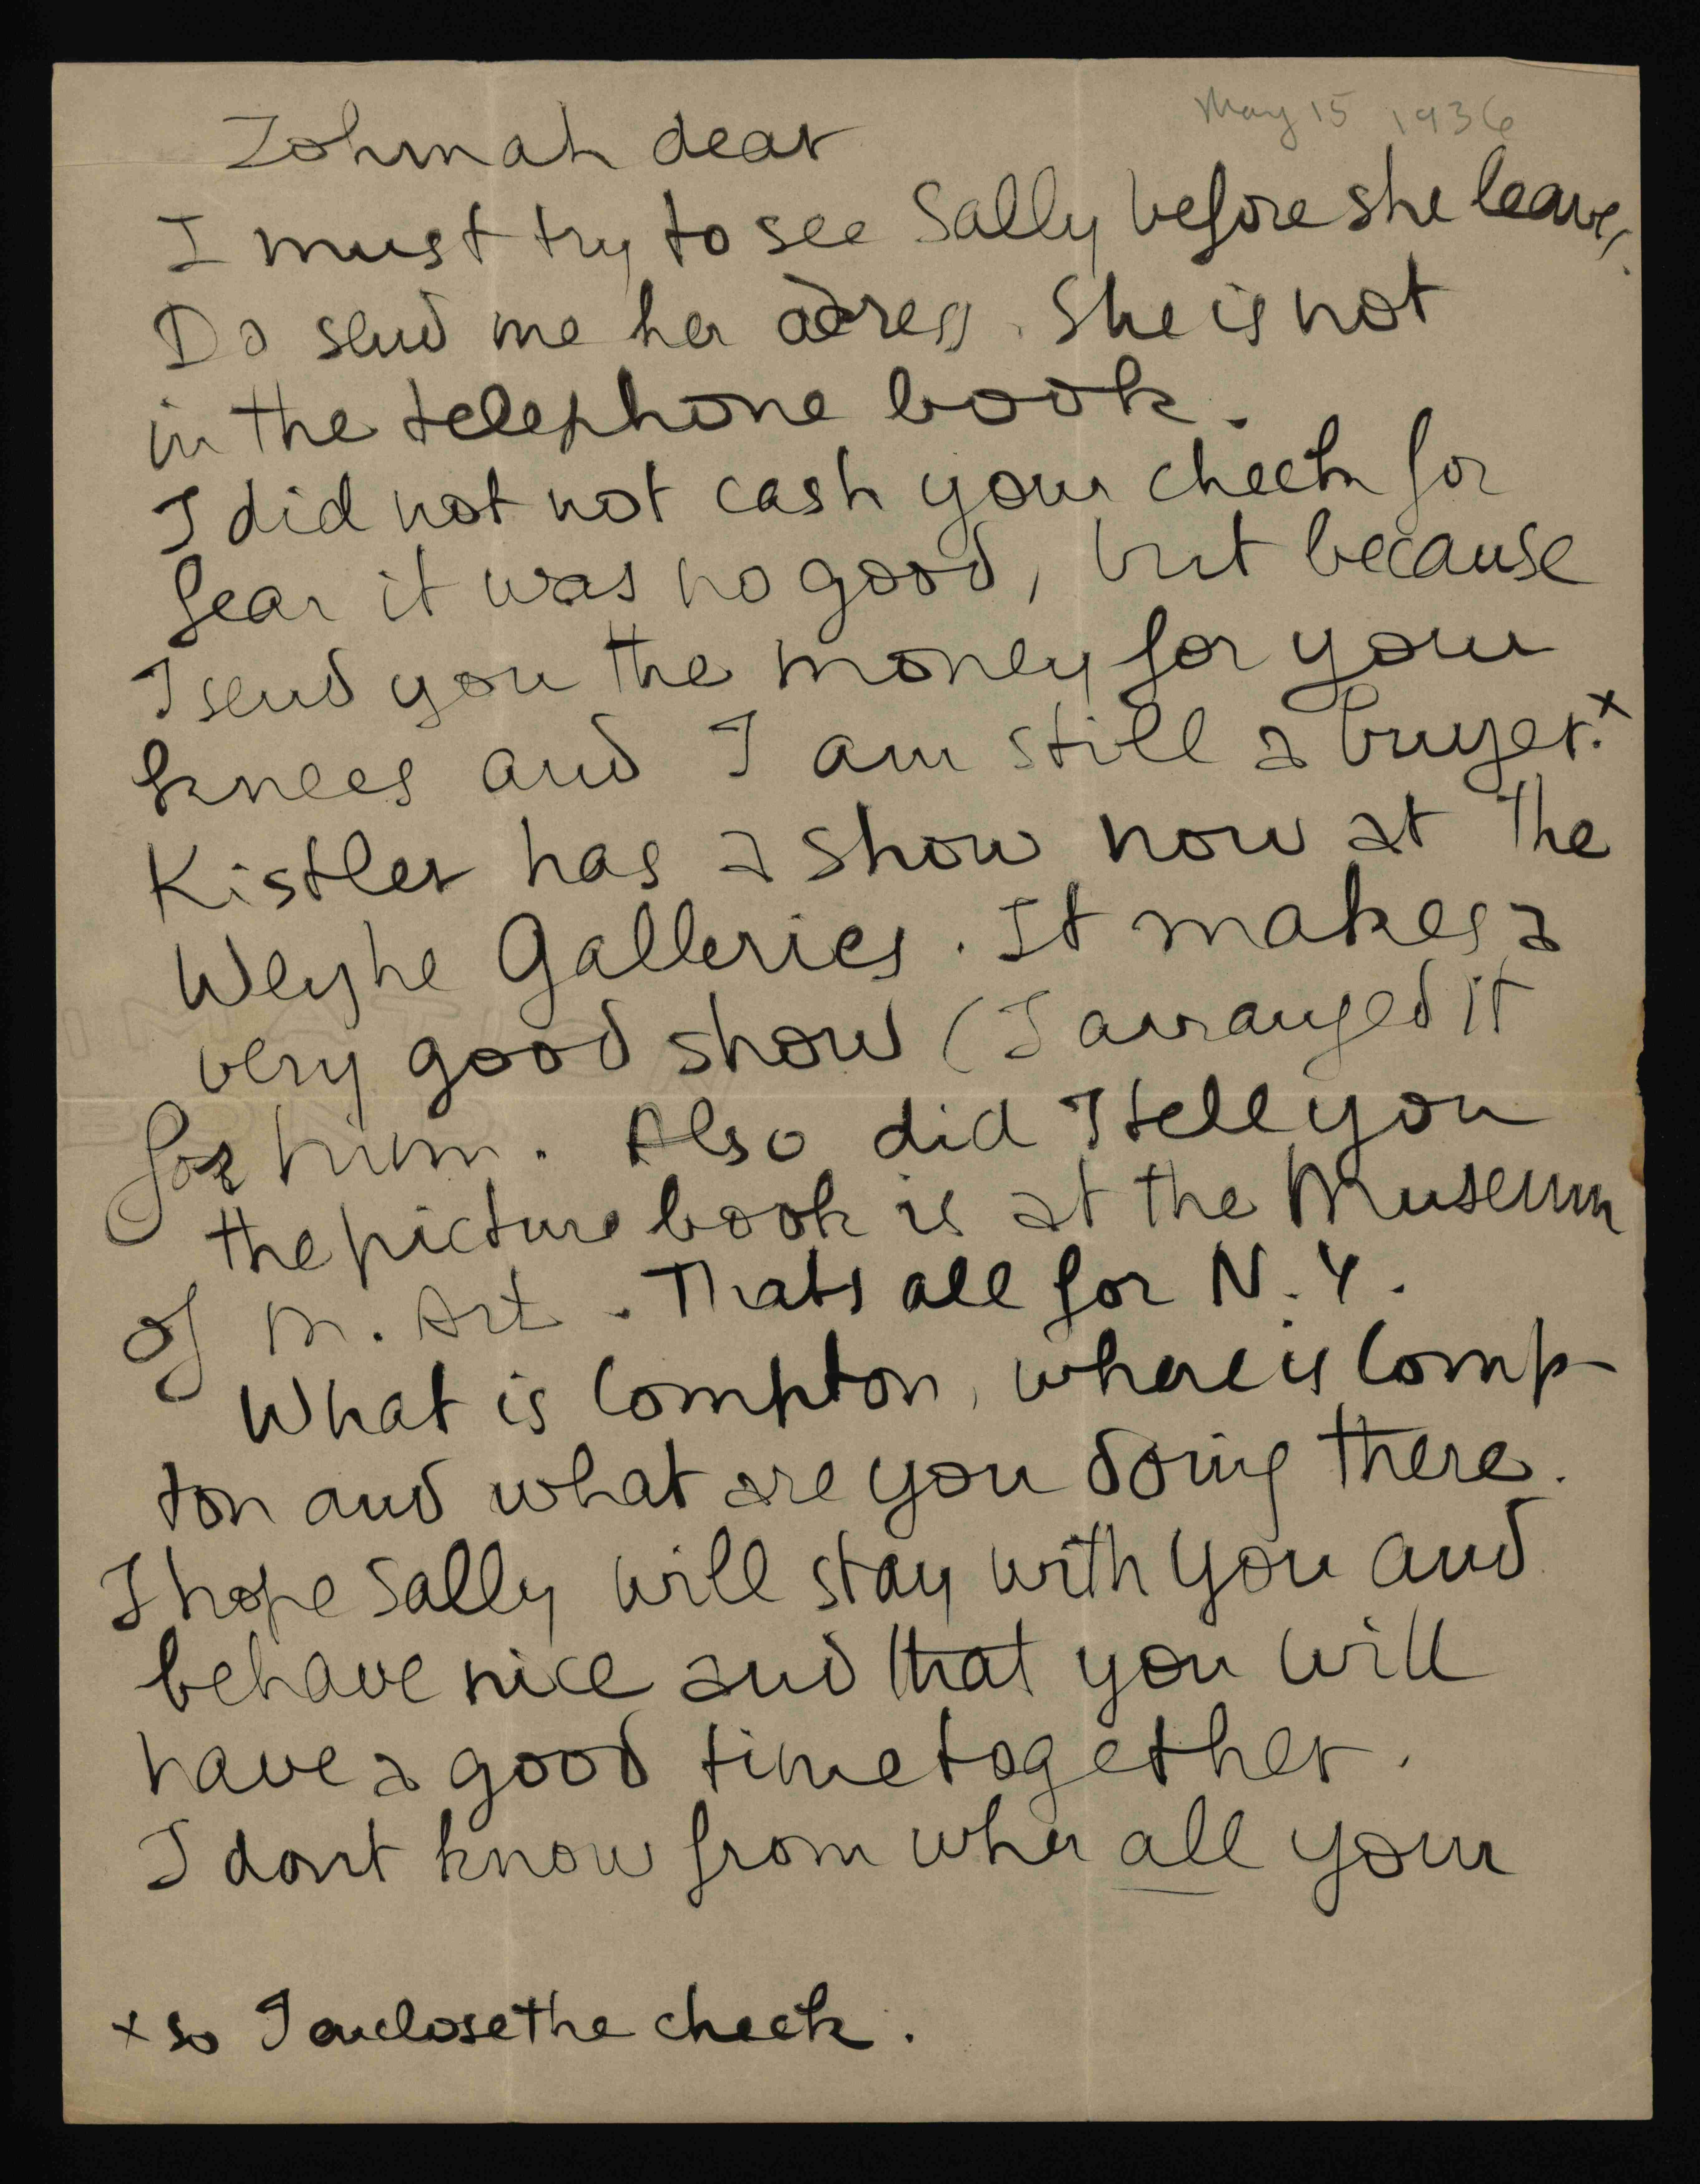 May 15 1936
Zohmah dear
I must try to see Sally before she leaves.
Do send me her adress. She is not
in the telephone book.
I did not not cash your check for
fear it was no good, but because
I send you the money for your
knees and I am still a buyer.x
Kistler has a show now at the
Weyhe Galleries. It makes a
very good show (I arranged it
for him. Also did I tell you
the picture book is at the Museum
of M. Art. Thats all for N.Y.
What is Compton, where is Comp-
ton and what are you doing there.
I hope Sally will stay with you and
behave nice and that you will
have a good time together.
I dont know from wher all your
x so I enclose the check.